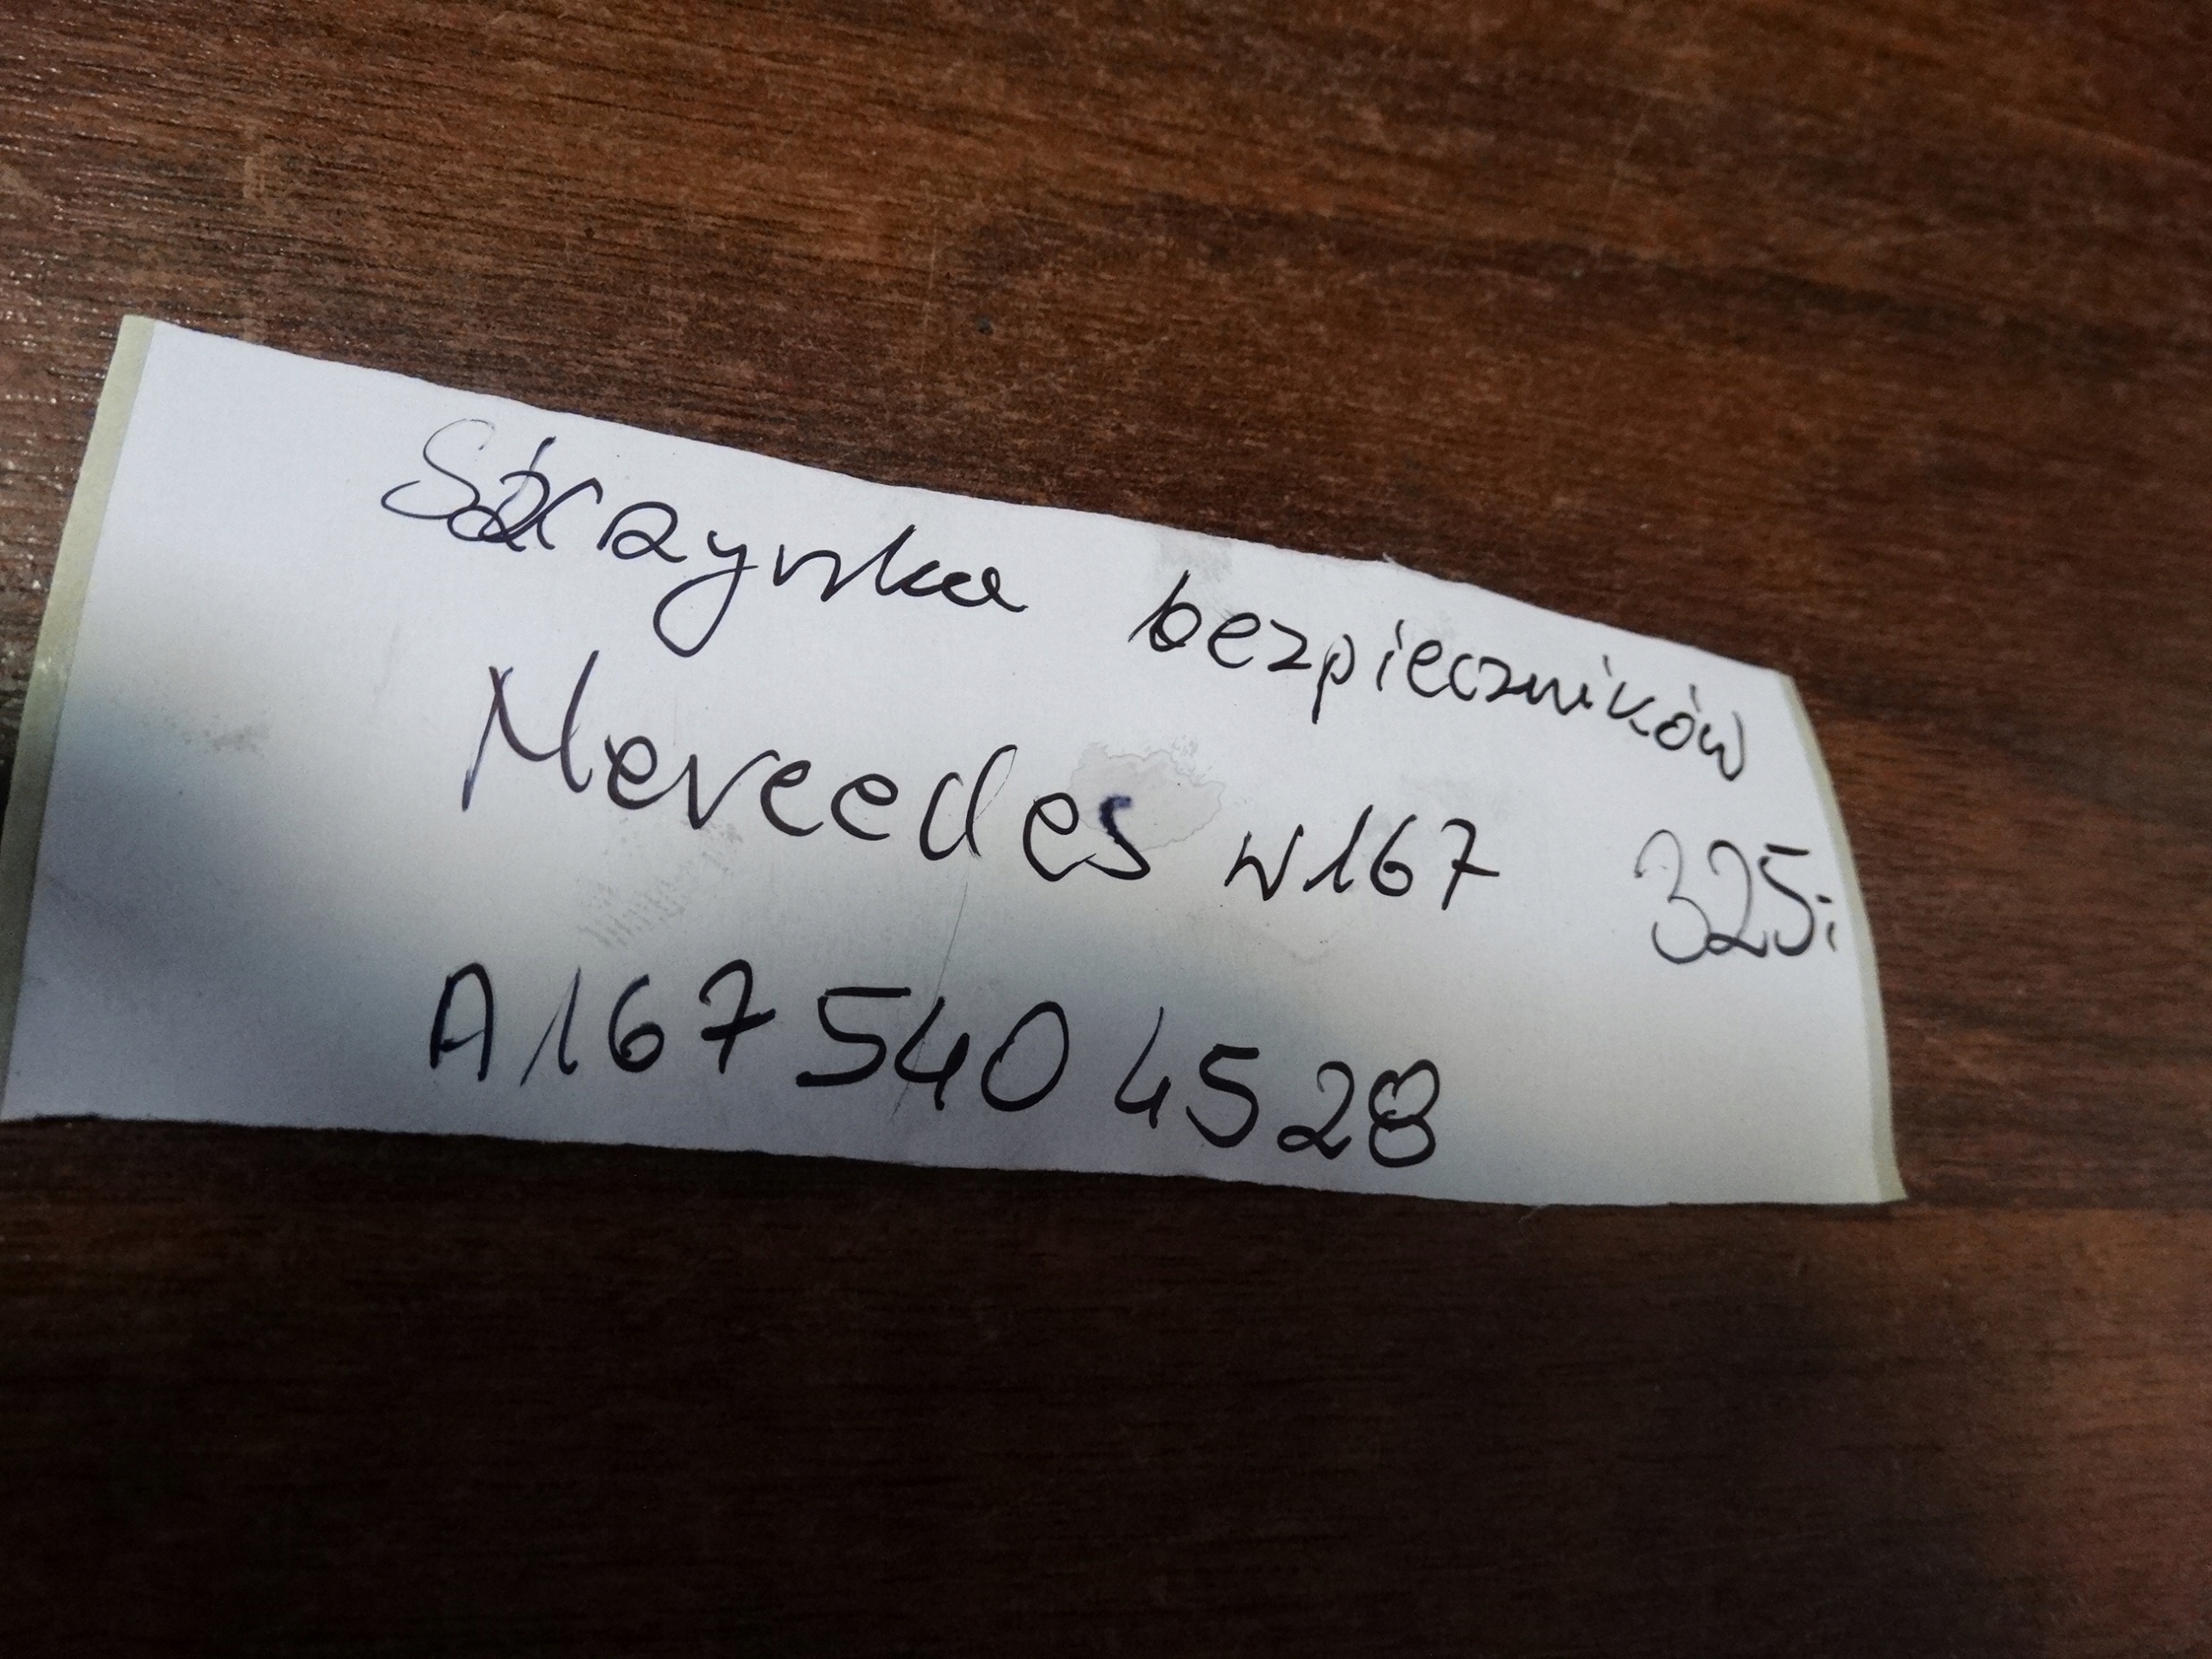 Skrzynka bezpieczników
Mercedes W167 325i
A167 540 4528